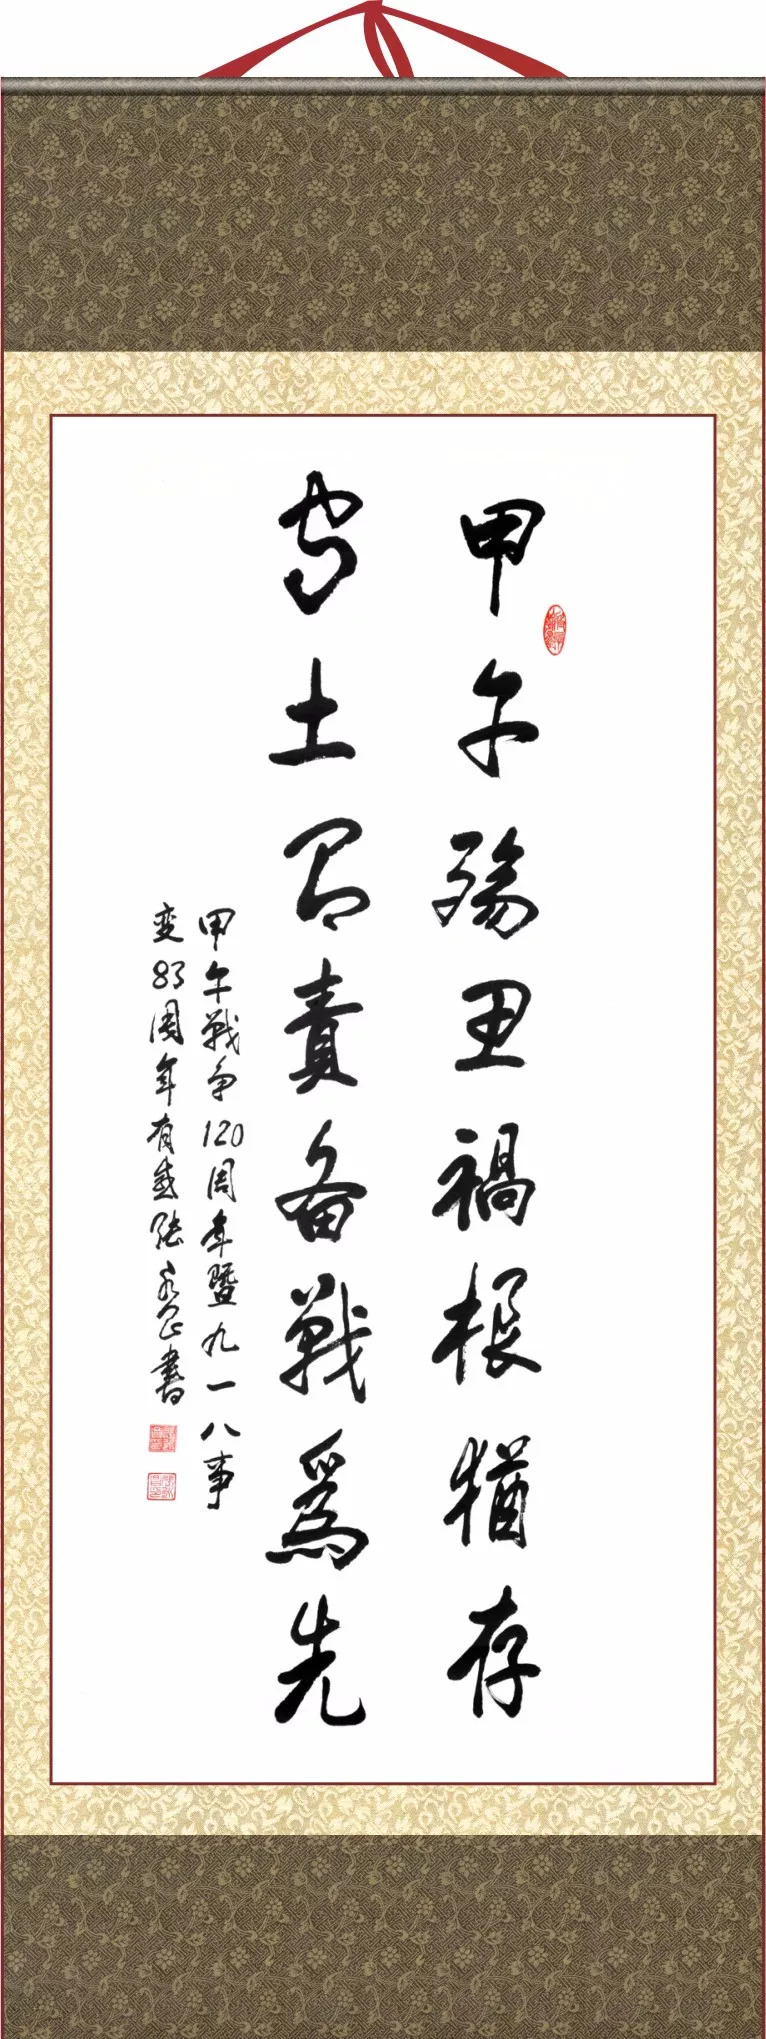 甲午殇思禍根猶存
守土有責备戰爲先
甲午戰争120周年暨九一八事
变83周年有感張書